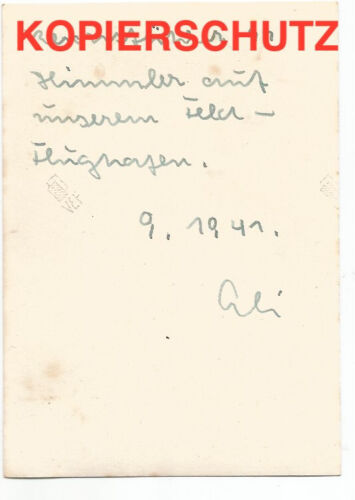 KOPIERSCHUTZ
Himmler auf
unserem Feld-
Flughafen.
9. 1941.